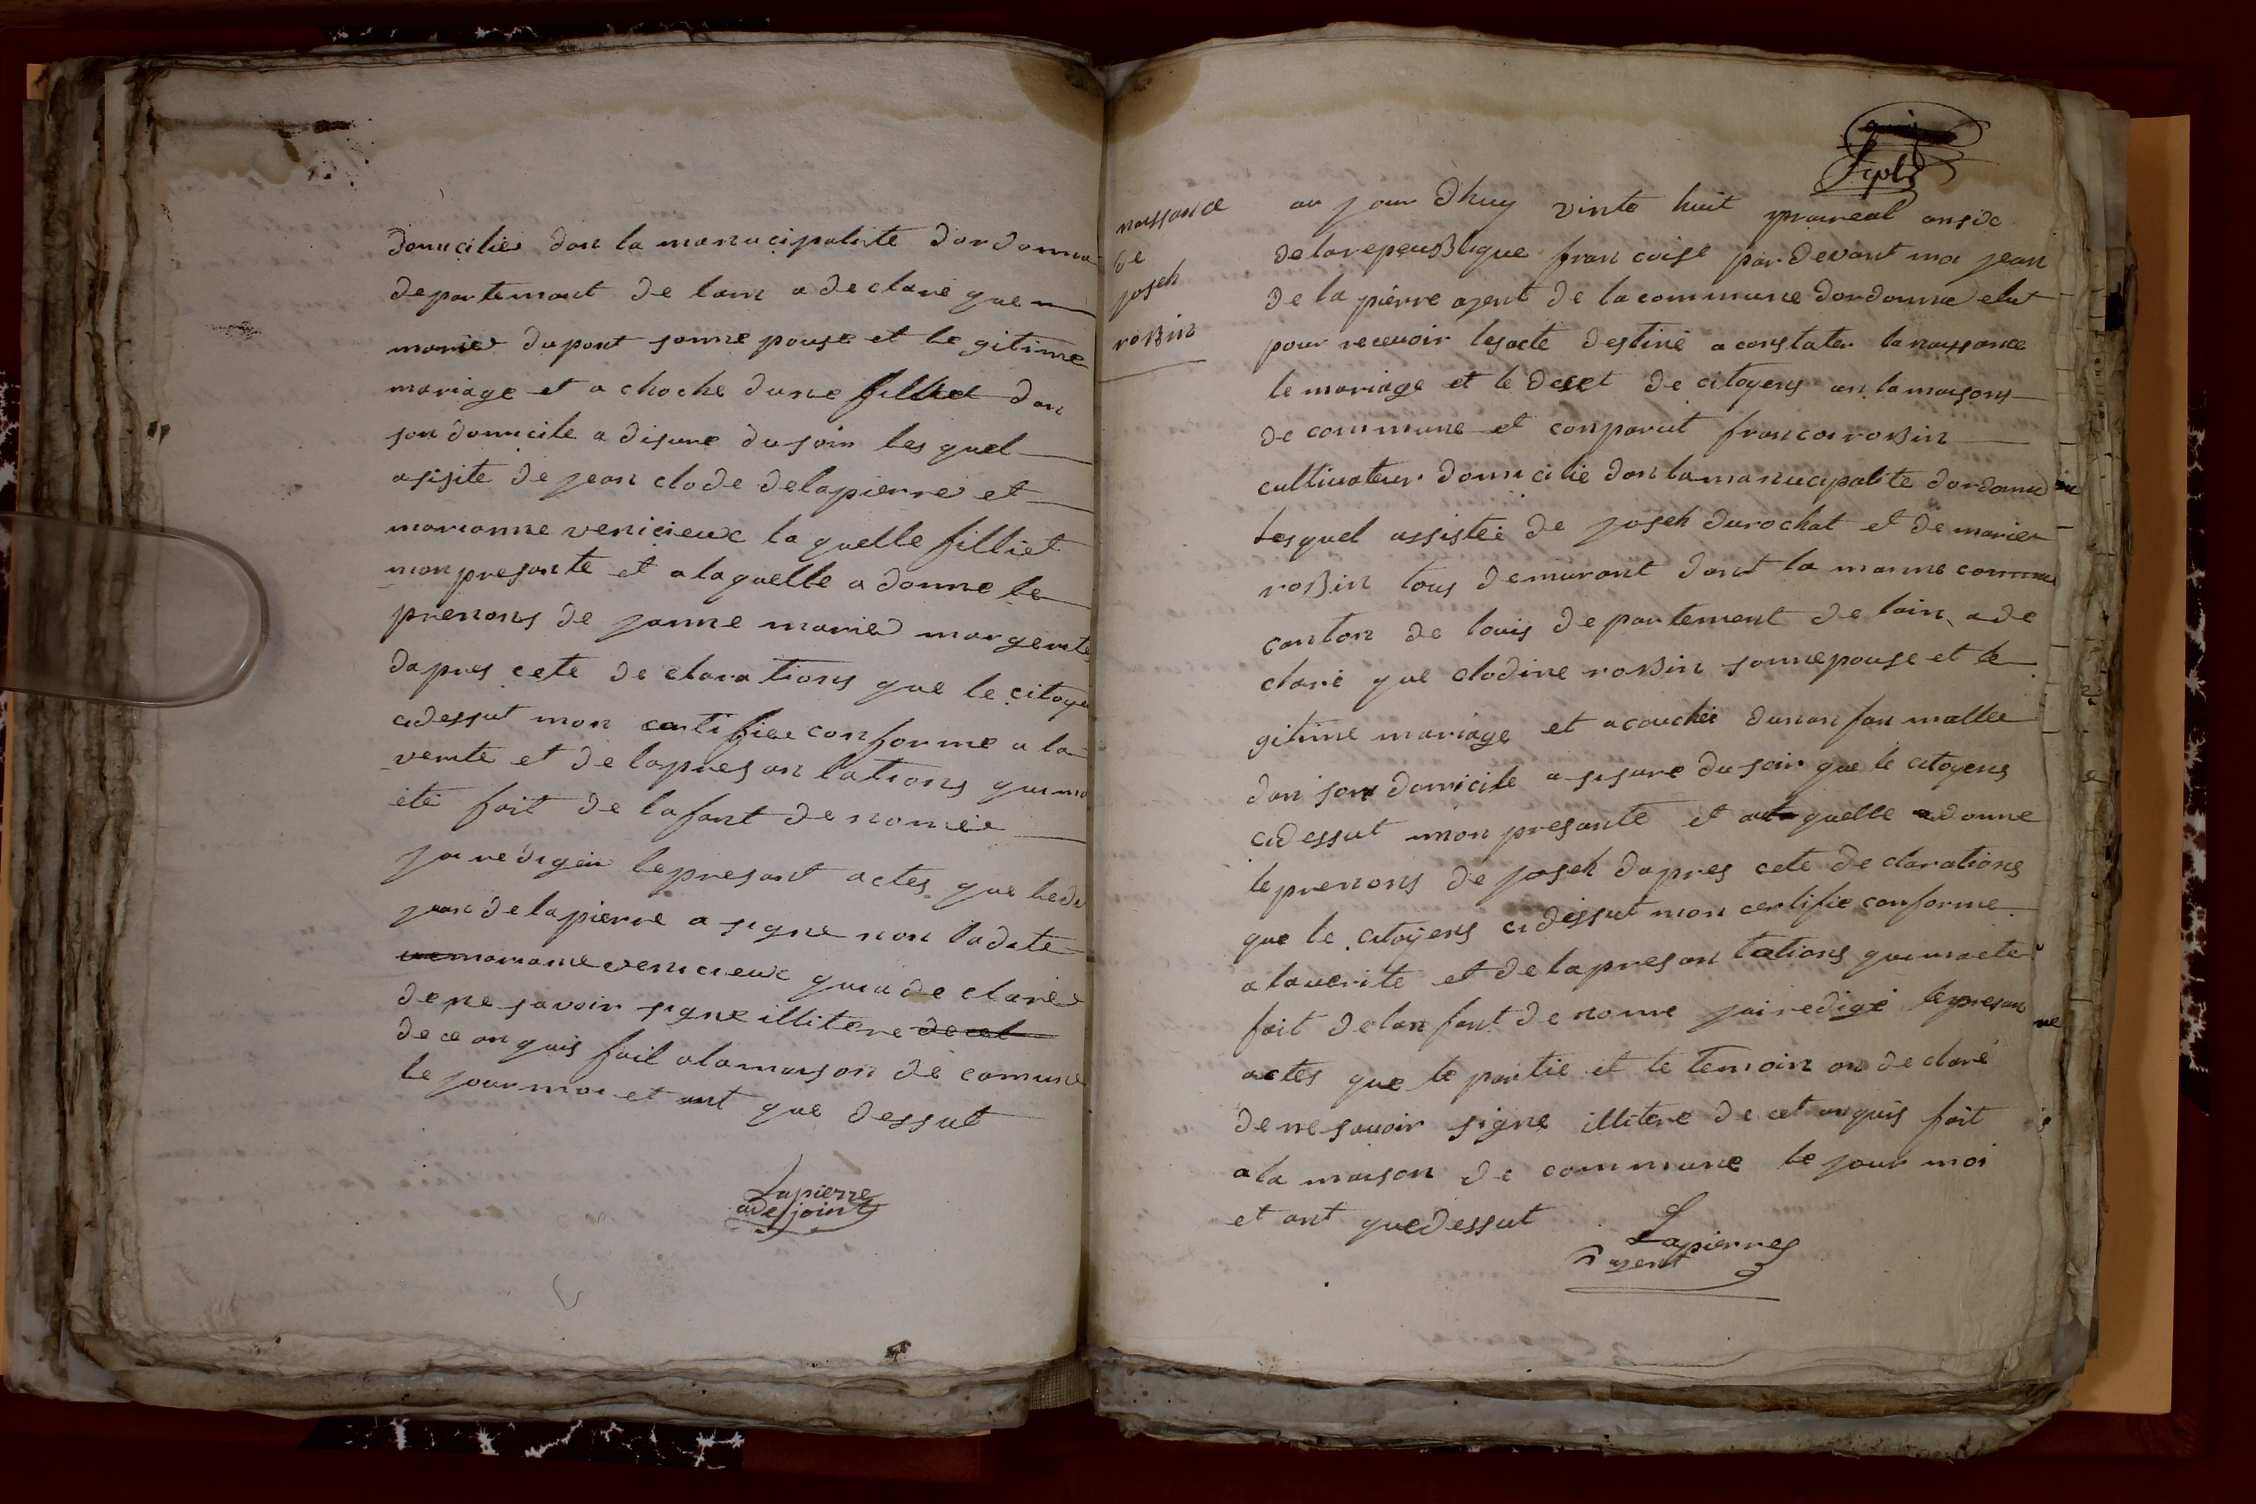 domicilié dan la manucipalité dordonna
departemant de lain a declaré que
marie dupont sonne pouse et le gitime
mariage et a choche dune filliet dan
son domicile a disure du soir les quel
asisite de jean clode delapierre et
marianne venicieux la quelle filliet
mon presante et a laquelle a donne le
prenons de janne marie margerite
dapres cete de clarations que le citoye
cidessut mon certifiee conforme a la
verite et de lapresan tations qui ma
été fait de lafant de nomée
jai redigéé lepresant actes que ledi
jean delapierre a signe non ladate
marianne venicieux qui a de clarée
de ne savoir signe illitere de cet
de ce an quis fait a lamaison de comune
le jour moi et ant que dessut
Lapierre
adejoint
naissance
de
joseh
roBin
au jour dhuy vinte huit praireal an six
de larepeusBlique fran coise par devant moi jean
de la pierre agent de la commune dordonna elut
pour recevoir lesacte destiné a constater la naissance
le mariage et le decet de citoyens an la maisons
de commune et conparut francoi roBin
cultivateur domicilie dan lamanucipalite dordonna
Lesquel assistéé de joseh durochat et de marie
roBin tous demurant dant la manne commu
canton de louis departement de lain a de
claré que clodine roBin sonnepouse et le
gitime mariage et acouchéé dunan fan malle
dan son domicile a sisure du soir que le citoyens
cidessut mon presante et ala quelle a donne
le prenons de joseh dapres cete de clarations
que le citoyens cidessut mon certifie conforme
a laverite et de lapresan tations qui ma ete
fait delan fant de nome jai redigé lepresan
actes que le partie et le temoin on declaré
de ne savoir signe illitere de cet an quis fait
a la maison de commune le jour moi
et ant quedessut
Lapierre
agent